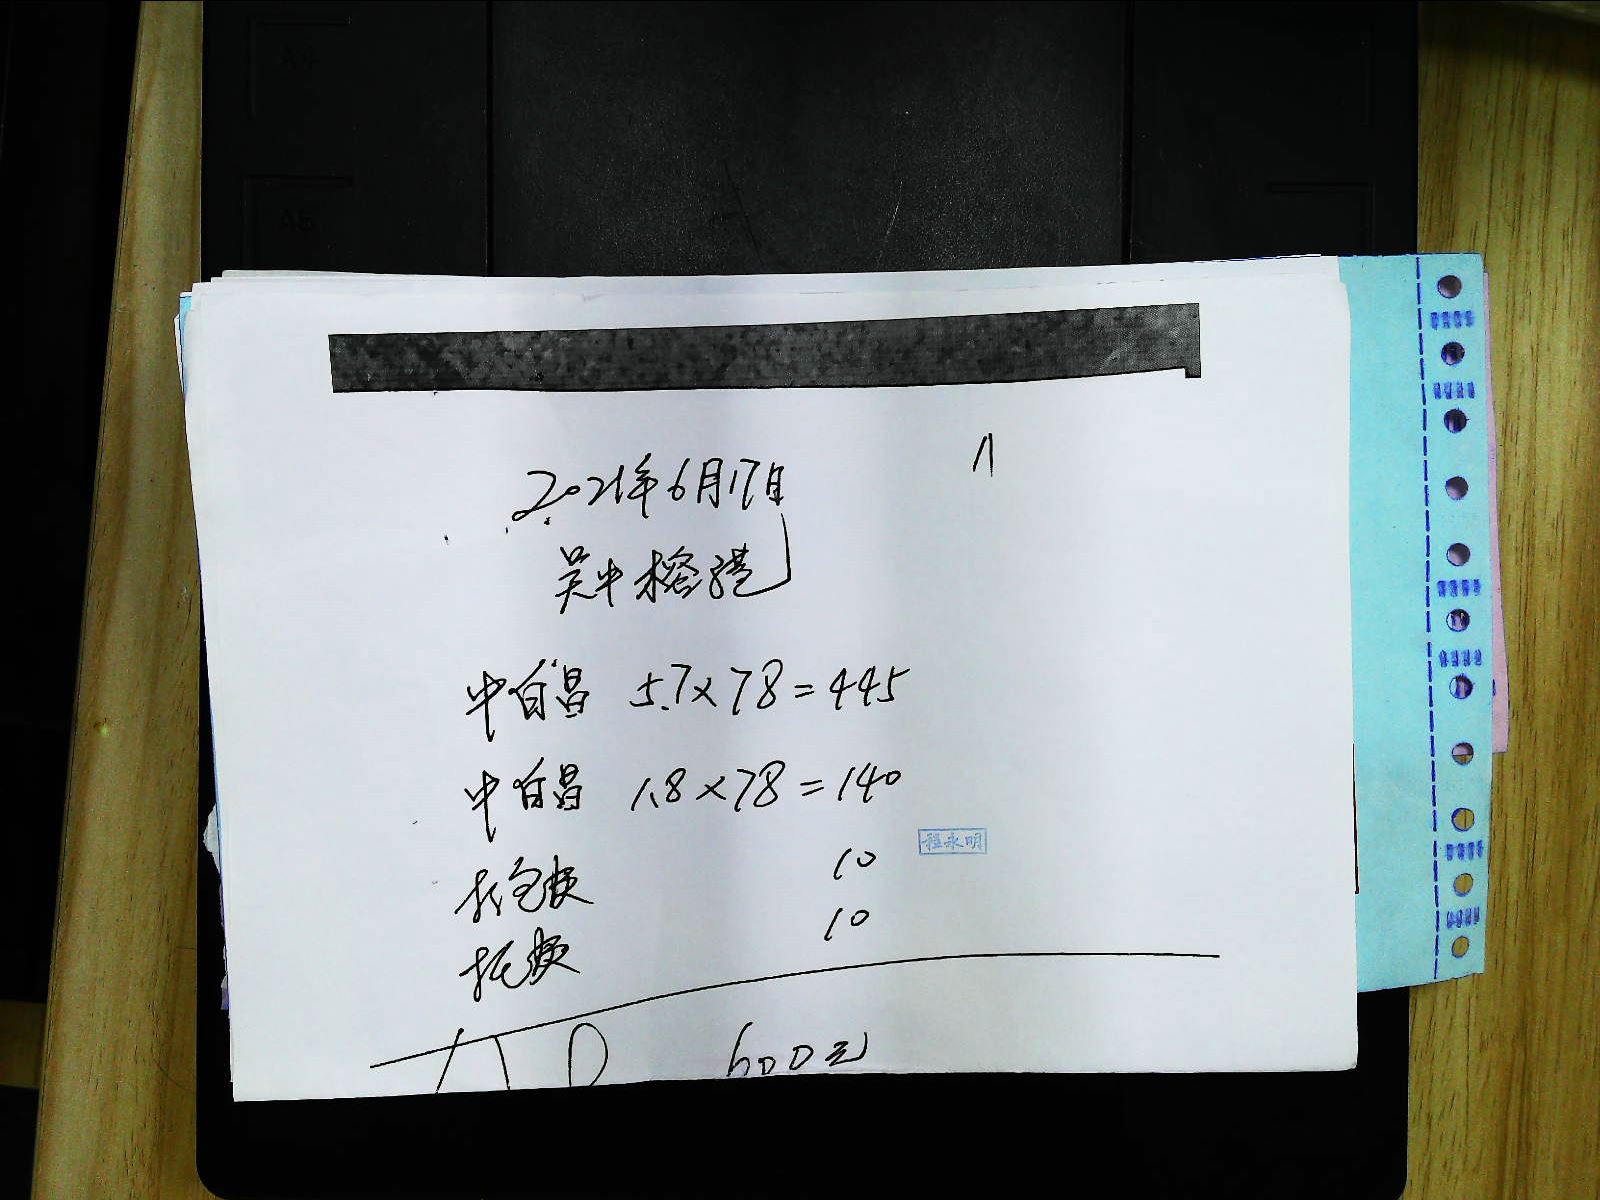 11
2021年6月17日
吴中榕港
中白昌 5.7×78=445
中白昌 1.8×78=140
程永明
打包费 10
托费 10
600元